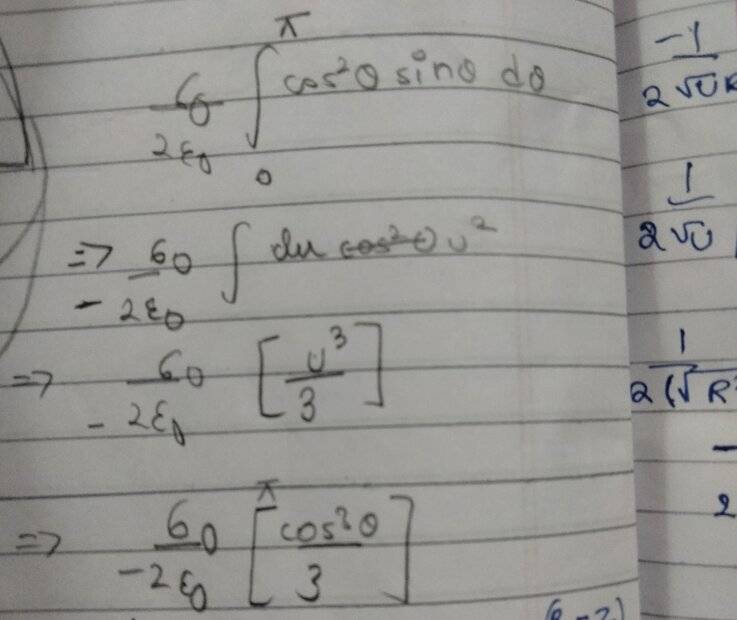 π
σ₀/2ε₀ ∫₀ cos²θ sinθ dθ
=> σ₀/-2ε₀ ∫ du u²
=> σ₀/-2ε₀ [u³/3]
=> σ₀/-2ε₀ [cos³θ/3] π
-1/2√U R
1/2√U
1/2(√R²
-
2